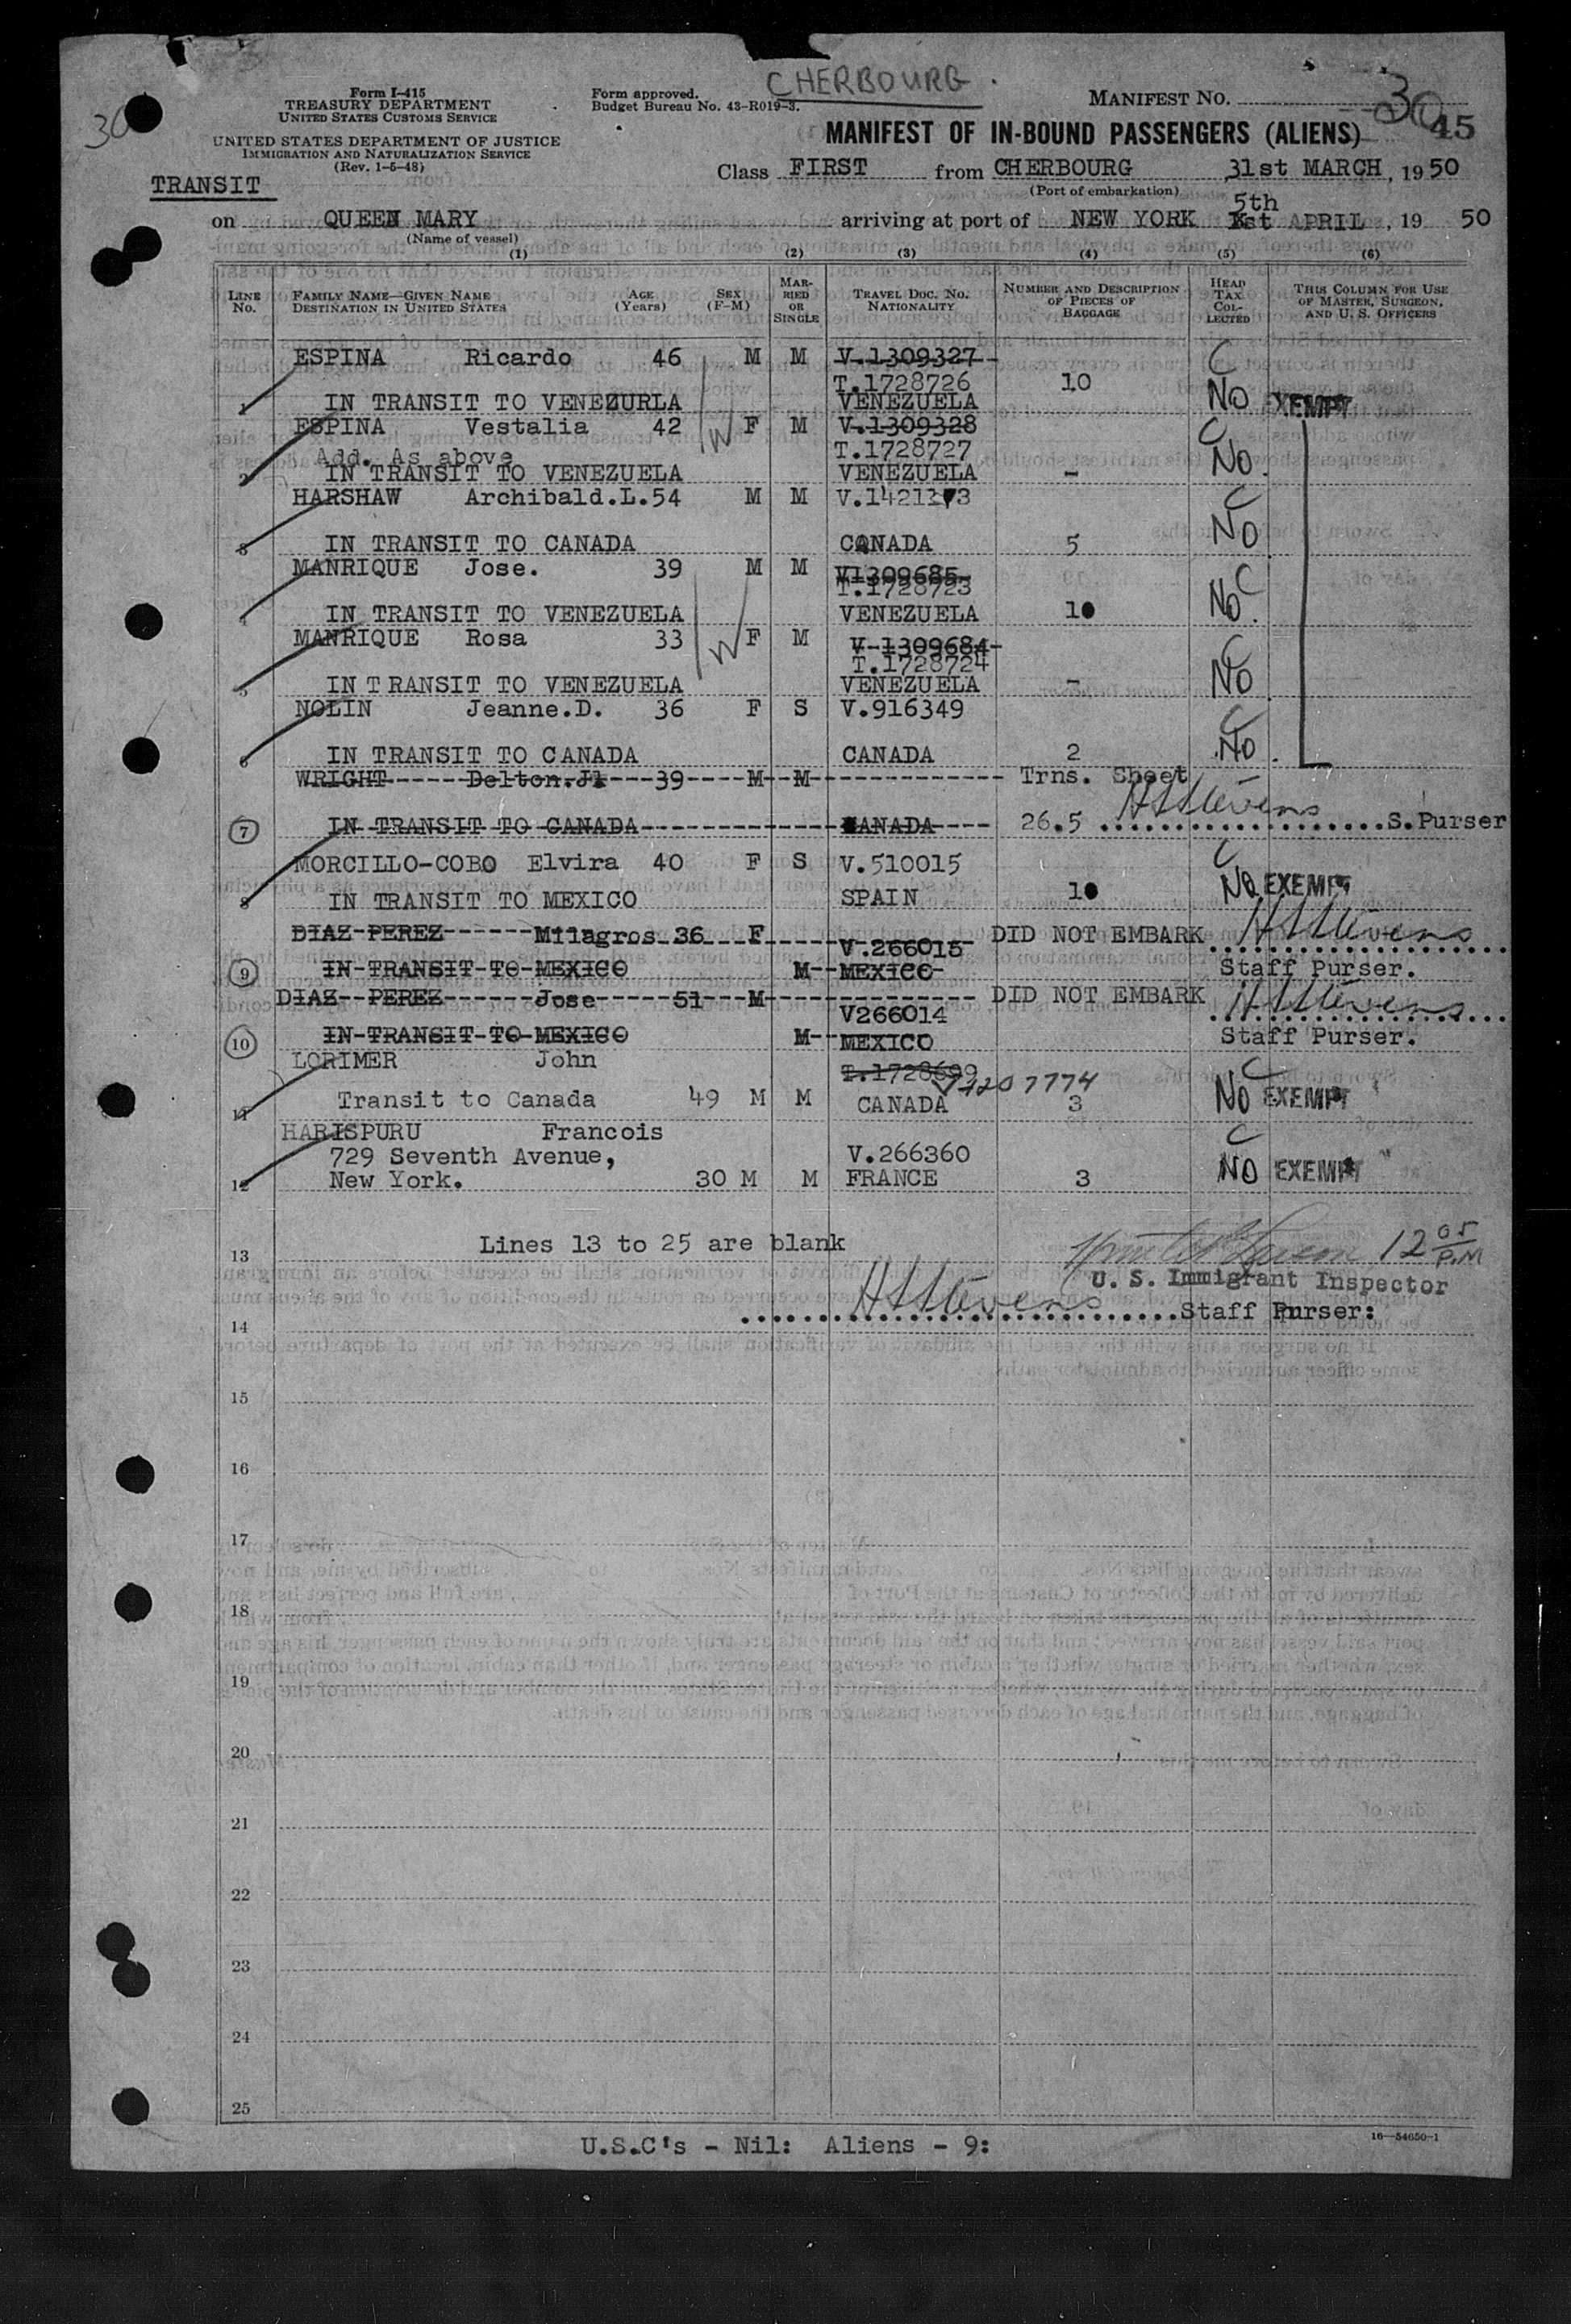 CHERBOURG.
Form I-415
TREASURY DEPARTMENT
UNITED STATES CUSTOMS SERVICE
Form approved.
Budget Bureau No. 43-R019-3.
MANIFEST NO. 30
45
30
UNITED STATES DEPARTMENT OF JUSTICE
IMMIGRATION AND NATURALIZATION SERVICE
(Rev. 1-5-48)
MANIFEST OF IN-BOUND PASSENGERS (ALIENS)
TRANSIT
Class FIRST from CHERBOURG 31st MARCH, 1950
(Port of embarkation)
5th
on QUEEN MARY arriving at port of NEW YORK st APRIL, 19 50
(Name of vessel)
(1) (2) (3) (4) (5) (6)
LINE NO. FAMILY NAME—GIVEN NAME DESTINATION IN UNITED STATES AGE (Years) SEX (F-M) MARRIED OR SINGLE TRAVEL DOC. NO. NATIONALITY NUMBER AND DESCRIPTION OF PIECES OF BAGGAGE HEAD TAX COLLECTED THIS COLUMN FOR USE OF MASTER, SURGEON, AND U. S. OFFICERS
ESPINA Ricardo 46 M M V.1309327 C
T.1728726 10
1 IN TRANSIT TO VENEZURLA VENEZUELA No EXEMPT
ESPINA Vestalia 42 W F M V.1309328 C
Add. As above T.1728727
2 IN TRANSIT TO VENEZUELA VENEZUELA - No.
HARSHAW Archibald.L.54 M M V.1421173 C
3 IN TRANSIT TO CANADA CANADA 5 No
MANRIQUE Jose. 39 M M V1309685
T.1728723
4 IN TRANSIT TO VENEZUELA VENEZUELA 10 No C
MANRIQUE Rosa 33 W F M V-1309684 C
T.1728724
5 IN TRANSIT TO VENEZUELA VENEZUELA - No
NOLIN Jeanne.D. 36 F S V.916349 C
6 IN TRANSIT TO CANADA CANADA 2 No.
WRIGHT Delton.J. 39 M M Trns. Sheet
7 IN TRANSIT TO CANADA CANADA 26.5 HStevens S.Purser
MORCILLO-COBO Elvira 40 F S V.510015 C
8 IN TRANSIT TO MEXICO SPAIN 10 No EXEMPT
DIAZ PEREZ Milagros 36 F V.266015 DID NOT EMBARK HStevens
9 IN TRANSIT TO MEXICO M MEXICO Staff Purser.
DIAZ PEREZ Jose 51 M V266014 DID NOT EMBARK HStevens
10 IN TRANSIT TO MEXICO M MEXICO Staff Purser.
LORIMER John T.1728699 C
11 Transit to Canada 49 M M CANADA 3 No EXEMPT
HARISPURU Francois C
729 Seventh Avenue, V.266360
12 New York. 30 M M FRANCE 3 NO EXEMPT
13 Lines 13 to 25 are blank 12 05 P.M
U. S. Immigrant Inspector
14 HStevens Staff Purser:
15
16
17
18
19
20
21
22
23
24
25
U.S.C's - Nil: Aliens - 9:
16—54650-1